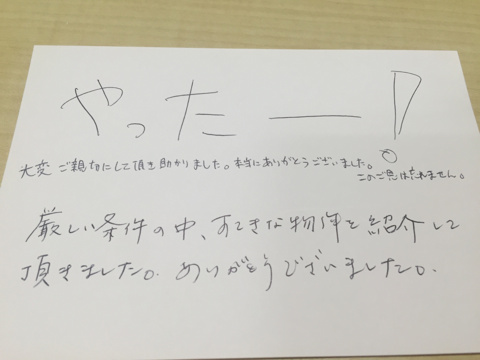 やったー!
大変ご親切にして頂き助かりました。本当にありがとうございました。
このご恩は忘れません。
厳しい条件の中、すてきな物件を紹介して
頂きました。ありがとうございました。